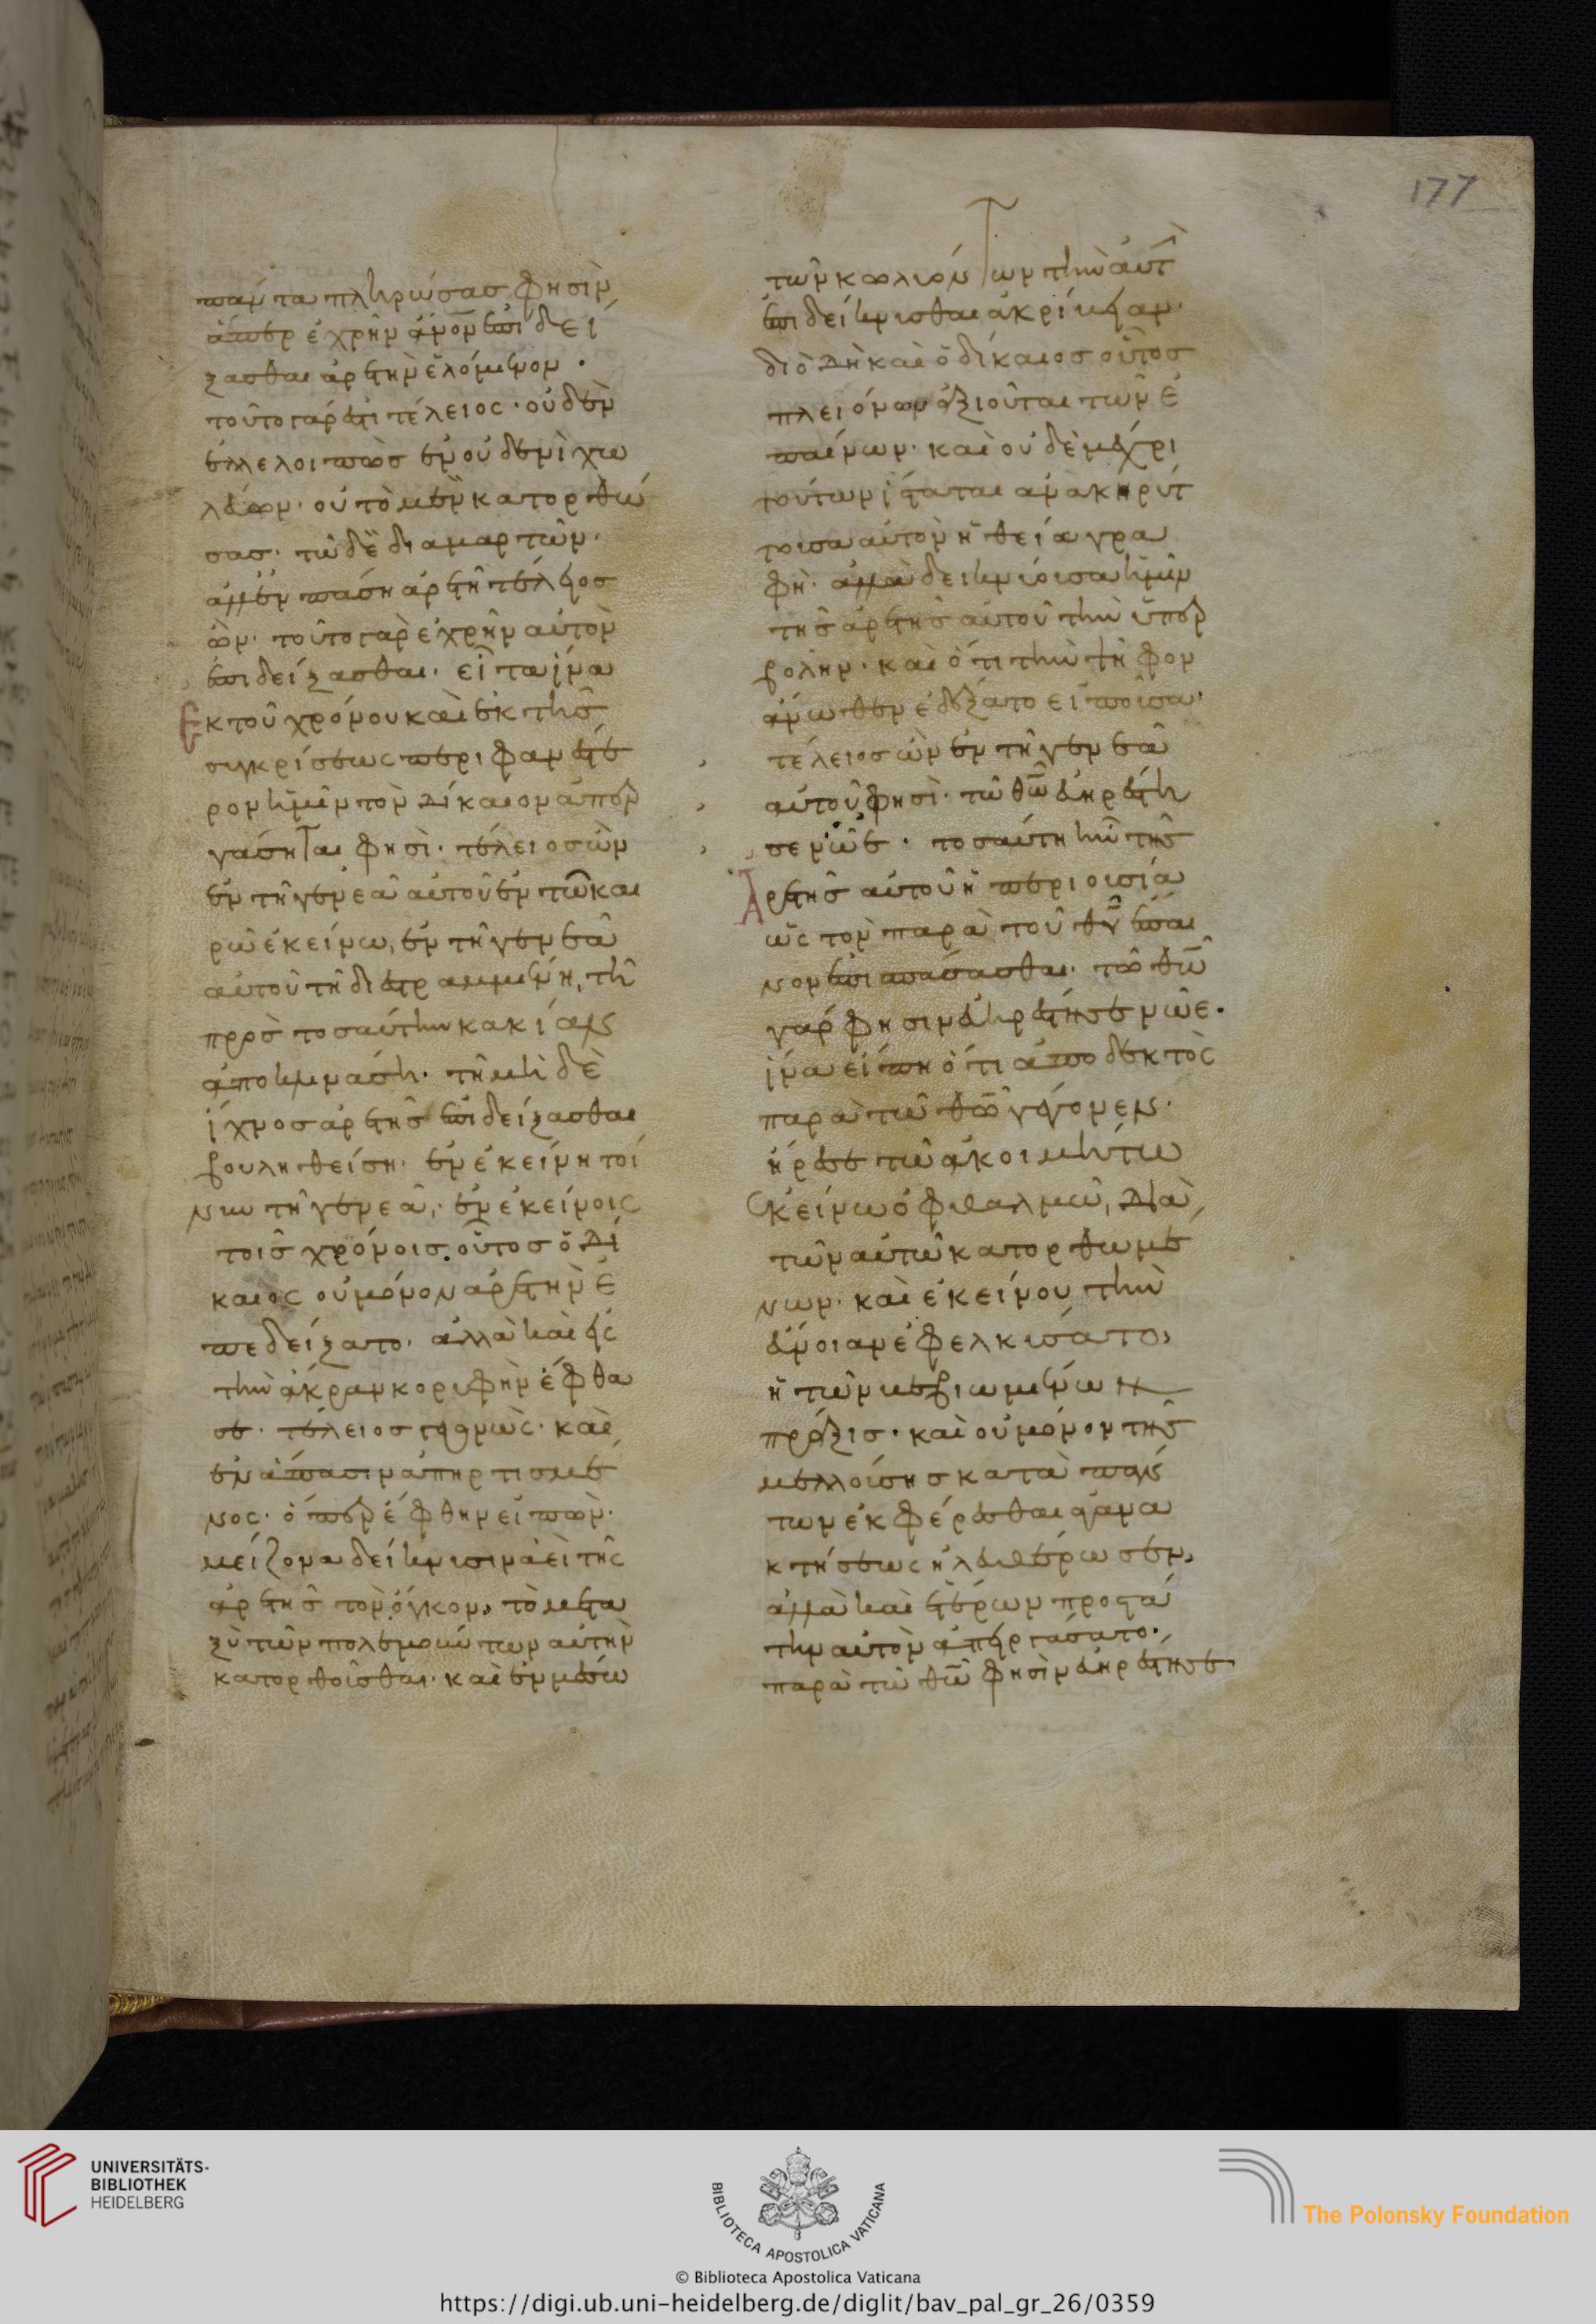 177
πάντα πληρώσας φησὶν
ἅπερ ἐχρῆν ἄνον ἐπιδεί
ξασθαι ἀρετὴν ἑλόμενον ·
τοῦτο γάρ ἐστι τέλειος · οὐδὲν
ἐλλέλοιπὼς ἐν οὐδενὶ χω
λεύων · οὐ τὸ μὲν κατορθώ
σας · τῶδε διαμαρτῶν ·
ἀλλ' ἐν πάση ἀρετῆ τέλειος
ὢν · τοῦτο γὰρ ἐχρῆν αὐτὸν
ἐπιδείξασθαι · εἶτα ἵνα
Ἐκ τοῦ χρόνου καὶ ἐκ τῆς
συγκρίσεως περιφανέστε
ρον ἡμῖν τὸν δίκαιον ἀπερ
γάσηται φησὶ · τέλειος ὢν
ἐν τῆ γενεᾶ αὐτοῦ ἐν τῶ και
ρῶ ἐκείνω, ἐν τῆ γενεᾶ
αὐτοῦ τῆ διεστραμμένη, τῆ
πρὸς τοσαύτην κακίαν
ἀπονεψάση · τῆ μὴ δὲ
ἴχνος ἀρετῆς ἐπιδείξασθαι
βουληθείση · ἐν ἐκείνη τοί
νυν τῆ γενεᾶ, · ἐν ἐκείνοις
τοῖς χρόνοις οὗτος ὁ δί
καιος οὐ μόνον ἀρετὴν ἐ
πεδείξατο · ἀλλὰ καὶ εἰς
τὴν ἄκραν κορυφὴν ἔφθα
σε · τέλειος γενόμενος · καὶ
ἐν ἅπασιν ἀπηρτισμέ
νος · ὅπερ ἔφθην εἰπὼν ·
μείζονα δείκνυσιν ἀεὶ τῆς
ἀρετῆς τὸν ὄγκον, τὸ μετα
ξὺ τῶν πολεμούντων αὐτὴν
κατορθοῦσθαι · καὶ ἐν μέσω
τῶν κωλυόντων τὴν ἀρετ
ἐπιδείκνυσθαι ἀκρίβειαν ·
διὸ δὴ καὶ ὁ δίκαιος οὗτος
πλειόνων ἀξιοῦται τῶν ἐ
παίνων · καὶ οὐδὲ μέχρι
τούτων ἵσταται ἀνακηρύτ
τουσα αὐτὸν ἡ θεία γρα
φή · ἀλλὰ δεικνύουσα ἡμῖν
τῆς ἀρετῆς αὐτοῦ τὴν ὑπερ
βολήν · καὶ ὅτι τὴν ψῆφον
ἄνωθεν ἐδέξατο εἰποῦσα ·
τέλειος ὢν ἐν τῆ γενεᾶ
αὐτοῦ φησὶ · τῶ θω εὐηρέστη
σε νῶε · τοσαύτη ἦν τῆς
Ἀρετῆς αὐτοῦ ἡ περιουσία
ὡς τὸν παρὰ τοῦ θυ ἔπαι
νον ἐπισπάσασθαι · τῶ θω
γάρ φησιν εὐηρέστησε νῶε ·
ἵνα εἴπη ὅτι ἀποδεκτὸς
παρὰ τῶ θω γέγονεν ·
ἤρεσε τῶ ἀκοιμήτω
ἐκείνω ὀφθαλμῶ, διὰ
τῶν αὐτῶ κατορθωμέ
νων · καὶ ἐκείνου τὴν
εὔνοιαν ἐφελκύσατο,
ἡ τῶν βεβιωμένων
πρᾶξις · καὶ οὐ μόνον τῆς
μελλούσης κατὰ πάν
των ἐκφέρεσθαι ἀγανα
κτήσεως ἠλευθέρωσεν,
ἀλλὰ καὶ ἑτέρων προστά
την αὐτὸν ἀπειργάσατο ·
παρὰ τῶ θω φησὶν εὐηρέστησε
UNIVERSITÄTS-
BIBLIOTHEK
HEIDELBERG
BIBLIOTECA APOSTOLICA VATICANA
The Polonsky Foundation
© Biblioteca Apostolica Vaticana
https://digi.ub.uni-heidelberg.de/diglit/bav_pal_gr_26/0359